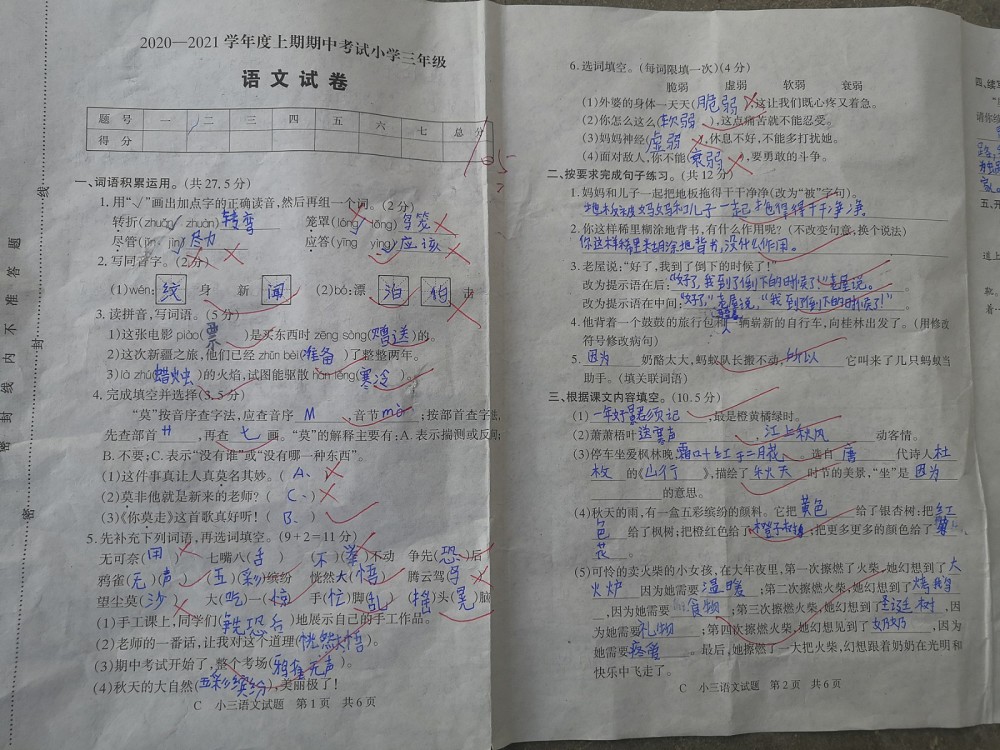 2020—2021学年度上期期中考试小学三年级
语文试卷
题号 一 二 三 四 五 六 七 总分
得分
105
一、词语积累运用。(共27.5分)
1.用“√”画出加点字的正确读音,然后再组一个词。(2分)
转折(zhuǎn zhuàn)转弯 笼罩(lóng lǒng)鸟笼
尽管(jǐn jìn)尽力 应答(yīng yìng)应该
2.写同音字。(2分)
(1)wén:纹身 新闻 (2)bó:漂泊 伯击
3.读拼音,写词语。(5分)
1)这张电影piào(票)是买东西时zēng sòng(赠送)的。
2)这次新疆之旅,他们已经zhǔn bèi(准备)了整整两年。
3)là zhú(蜡烛)的火焰,试图能驱散hán lěng(寒冷)。
4.完成填空并选择(3.5分)
“莫”按音序查字法,应查音序 M ,音节 mò ;按部首查字
先查部首 艹 ,再查 七 画。“莫”的解释主要有:A.表示揣测或反
B.不要;C.表示“没有谁”或“没有哪一种东西”。
(1)这件事真让人真莫名其妙。(A、)
(2)莫非他就是新来的老师?(C、)
(3)《你莫走》这首歌真好听!(B、)
5.先补充下列词语,再选词填空。(9+2=11分)
无可奈(用) 七嘴八(舌) (不)(举)不动 争先(恐)后
鸦雀(无)(声) (五)(彩)缤纷 恍然大(悟) 腾云驾()
望尘莫(沙) 大(吃)一(惊) 手(忙)脚(乱) (摇)头(晃)脑
(1)手工课上,同学们(先恐后)地展示自己的手工作品。
(2)老师的一番话,让我对这个道理(恍然大悟)。
(3)期中考试开始了,整个考场(鸦雀无声)。
(4)秋天的大自然(五彩缤纷),美丽极了!
C 小三语文试题 第1页 共6页
6.选词填空。(每词限填一次)(4分)
脆弱 虚弱 软弱 衰弱
(1)外婆的身体一天天(脆弱),这让我们既心疼又着急。
(2)你怎么这么(软弱),这点痛苦就不能忍受。
(3)妈妈神经(虚弱),休息不好,不能多打扰她。
(4)面对敌人,你不能(衰弱),要勇敢的斗争。
二、按要求完成句子练习。(共12分)
1.妈妈和儿子一起把地板拖得干干净净(改为“被”字句)。
地板被妈妈和儿子一起拖得得干干净净
2.你这样稀里糊涂地背书,有什么作用呢?(不改变句意,换个说法)
你这样稀里糊涂地背书,没什么作用。
3.老屋说:“好了,我到了倒下的时候了!”
改为提示语在后:“好了,我到了倒下的时候了!”老屋说。
改为提示语在中间:“好了,”老屋说,“我到了倒下的时候了!”
4.他背着一个鼓鼓的旅行包和一辆崭新的自行车,向桂林出发了。(用修改
符号修改病句)
5. 因为 奶酪太大,蚂蚁队长搬不动, 所以 它叫来了几只蚂蚁当
助手。(填关联词语)
三、根据课文内容填空。(10.5分)
(1)一年好景君须记 ,最是橙黄橘绿时。
(2)萧萧梧叶送寒声 ,江上秋风 动客情。
(3)停车坐爱枫林晚,霜叶红于二月花 。选自 唐 代诗人杜
枚 的《山行 》,描绘了 秋天 时节的美景,“坐”是 因为
的意思。
(4)秋天的雨,有一盒五彩缤纷的颜料。它把 黄色 给了银杏树;把红
色 给了枫树;把橙红色给了 橙子柿 ;把更多更多的颜色给了菊
花 。
(5)可怜的卖火柴的小女孩,在大年夜里,第一次擦燃了火柴,她幻想到了大
火炉 因为她需要 温暖 ;第二次擦燃火柴,她幻想到了烤鹅
,因为她需要 食物 ;第三次擦燃火柴,她幻想到了圣诞树 ,因
为她需要 礼物 ;第四次擦燃火柴,她幻想见到了 奶奶 ,因为
她需要 疼爱 。最后,她擦燃了一大把火柴,幻想跟着奶奶在光明和
快乐中飞走了。
C 小三语文试题 第2页 共6页
密封线内不准答题
四、续写
请你
五、